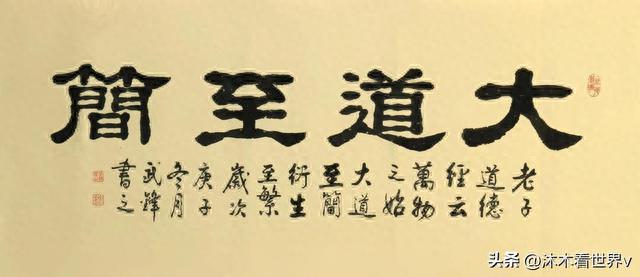 大道至簡
老子
道德
經云
萬物
之始
大道
至簡
衍生
至繁
歲次
庚子
冬月
武鋒
書之
头条 @沐木看世界v